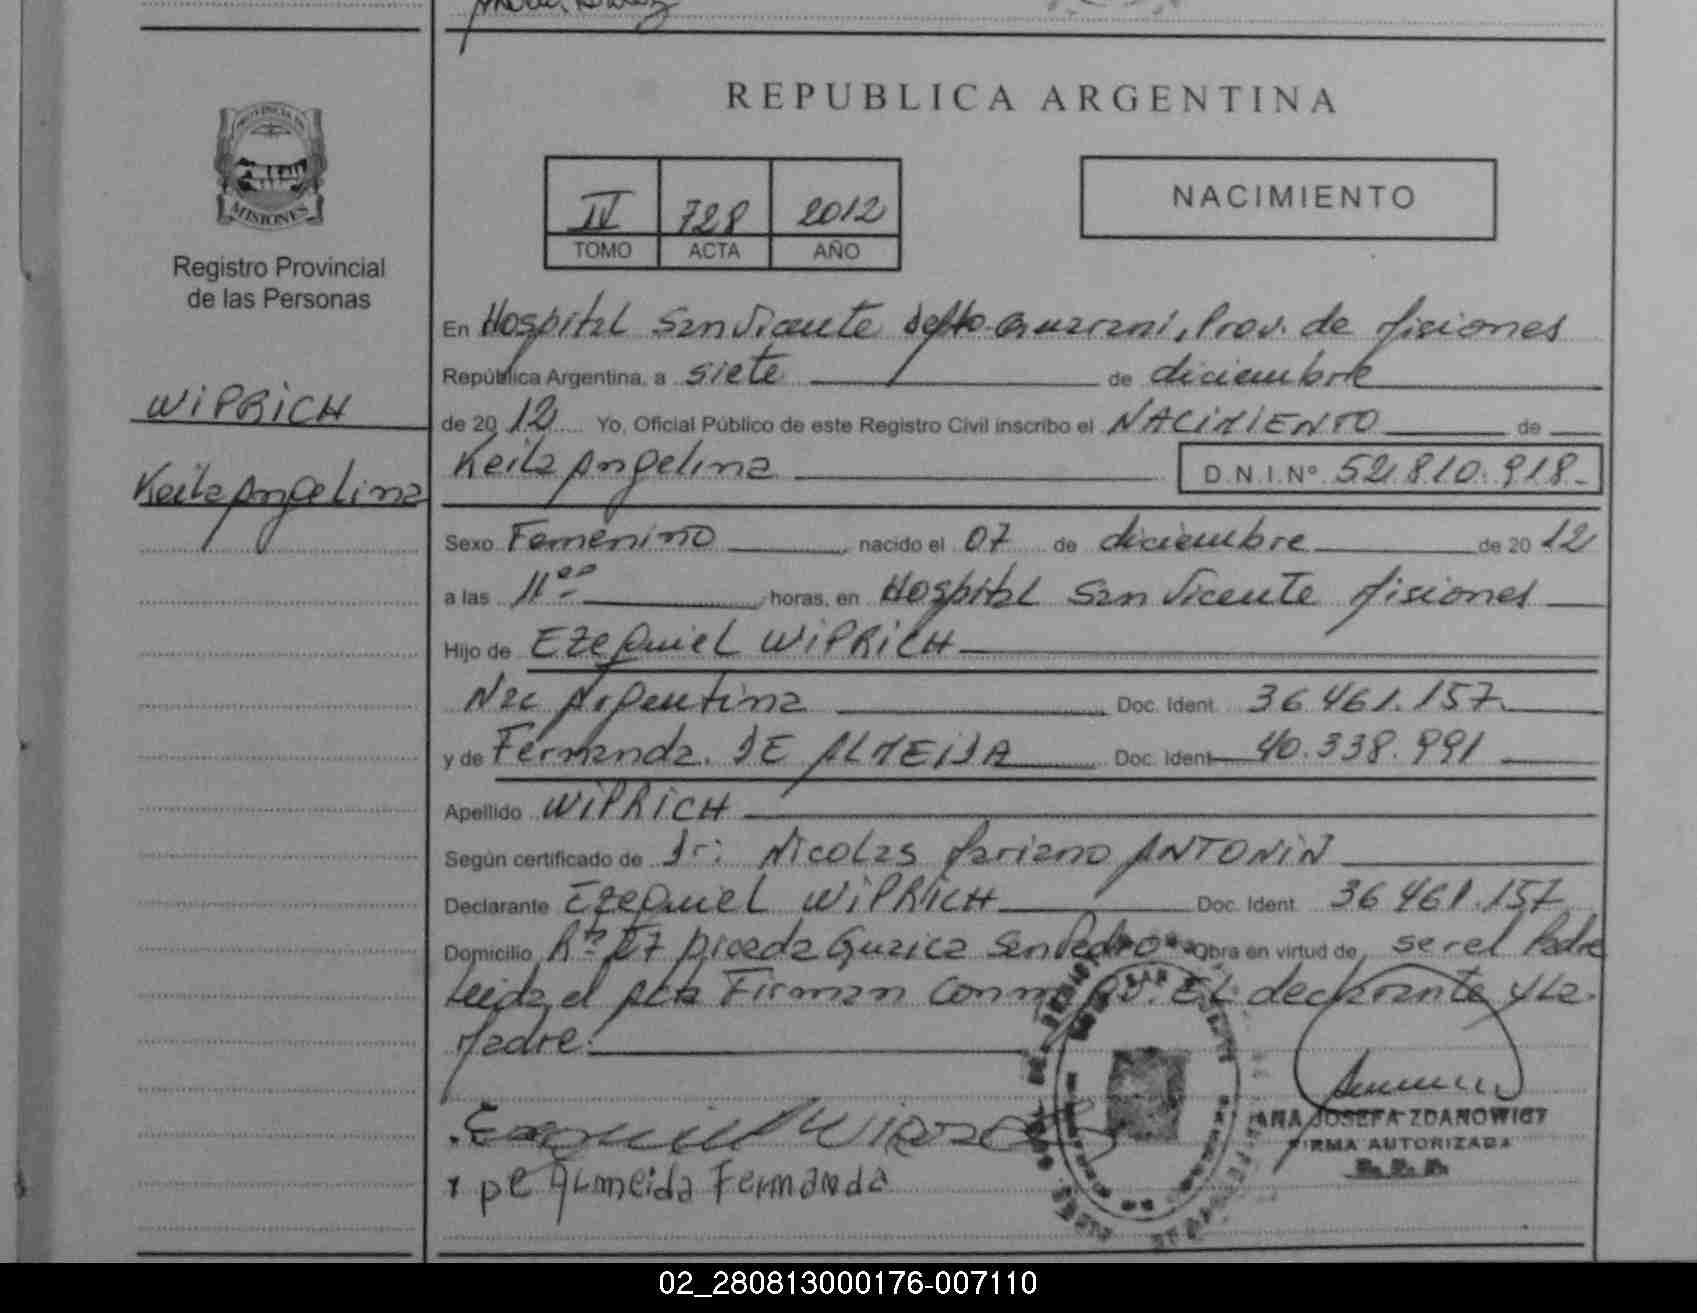 REPUBLICA ARGENTINA
PROVINCIA DE
MISIONES
Registro Provincial
de las Personas
WIPRICH
Keila Angelina
IV 728 2012
TOMO ACTA AÑO
NACIMIENTO
En Hospital San Vicente depto. Guarani, Prov. de Misiones
República Argentina, a siete de diciembre
de 2012 Yo, Oficial Público de este Registro Civil inscribo el NACIMIENTO de
Keila Angelina D.N.I.Nº 52.810.918.-
Sexo Femenino nacido el 07 de diciembre de 2012
a las 11:00 horas, en Hospital San Vicente Misiones
Hijo de Ezequiel WIPRICH
Nac Argentina Doc. Ident. 36.461.157
y de Fernanda. DE ALMEIDA Doc. Ident. 40.338.991
Apellido WIPRICH
Según certificado de Dr: Nicolas Mariano ANTONIN
Declarante Ezequiel WIPRICH Doc. Ident. 36.461.157
Domicilio San Pedro Obra en virtud de ser el Padre
Leida el Acta Firman El declarante y La
Madre.
Ezequiel
x De Almeida Fernanda
ANA JOSEFA ZDANOWICZ
FIRMA AUTORIZADA
02_280813000176-007110